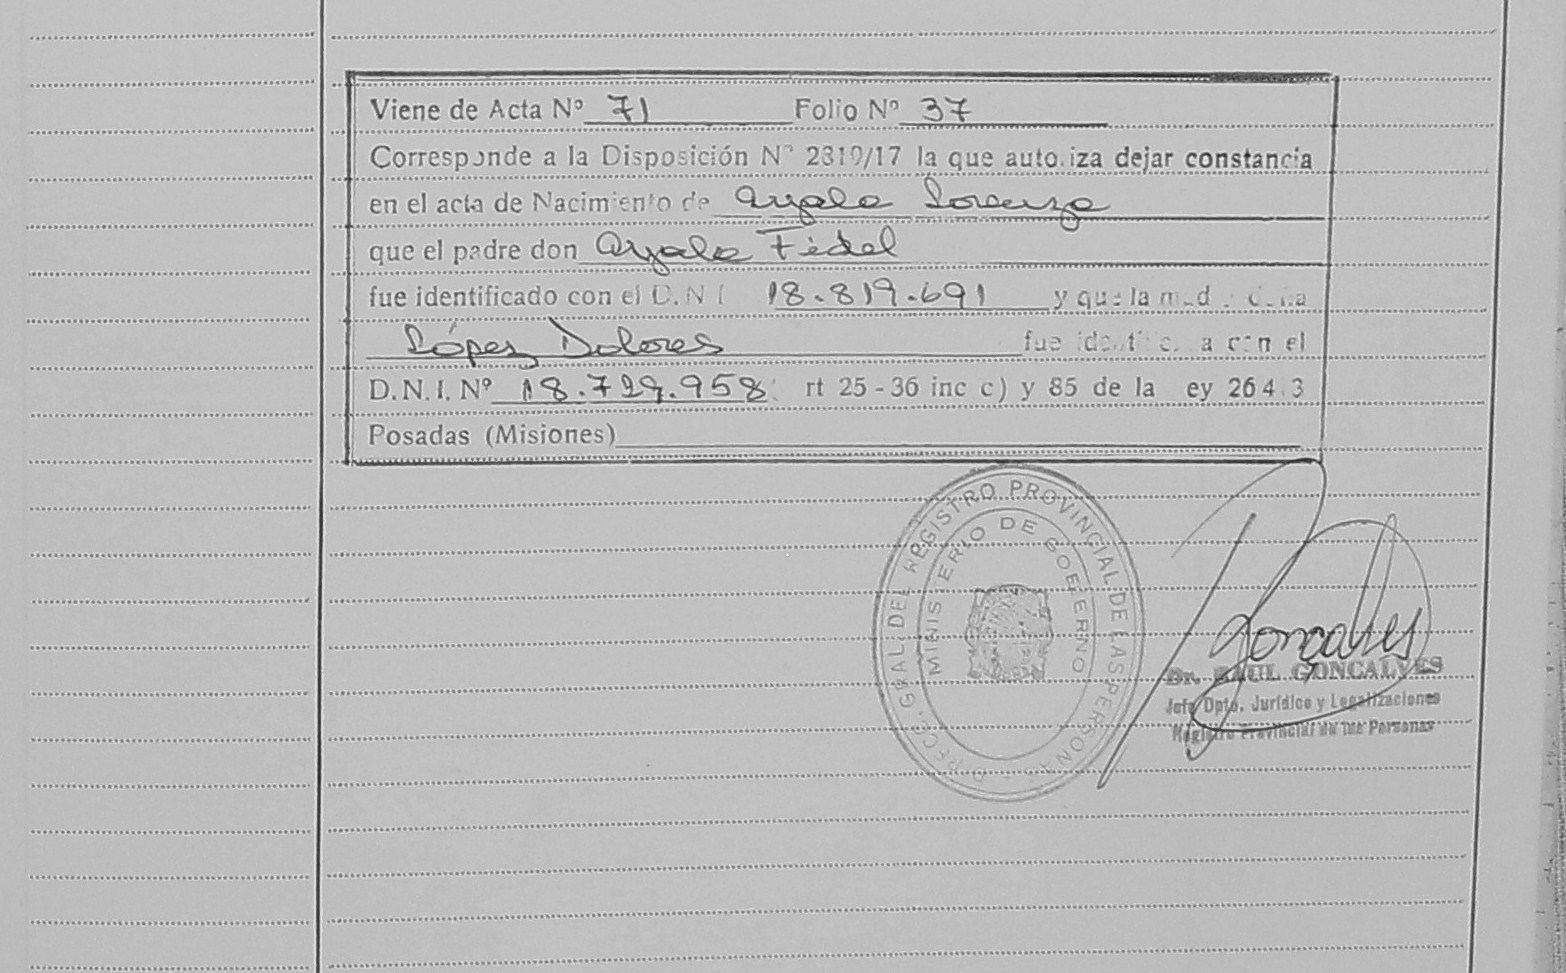 Viene de Acta Nº 71 Folio Nº 37
Corresponde a la Disposición Nº 2310/17 la que autoriza dejar constancia
en el acta de Nacimiento de Ayala Lorenzo
que el padre don Ayala Fidel
fue identificado con el D.N.I 18.819.691 y que la
López Dolores fue con el
D.N.I. Nº 18.729.958 rt 25-36 inc c) y 85 de la ey 264 3
Posadas (Misiones)
DIRECC. GRAL. DEL REGISTRO PROVINCIAL DE LAS PERSONAS
MINISTERIO DE GOBIERNO
Gonçalves
Dr. RAUL GONCALVES
Jefe Dpto. Jurídico y Legalizaciones
Registro Provincial de las Personas